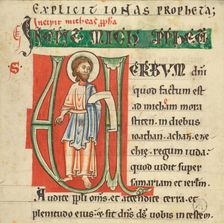 EXPLICIT IONAS PROPHETA;
Incipit micheas ppha
VERBUM dni
quod factum est
ad micham mora
stiten. in diebus
ioathan. achaz. eze
chie. regum iuda:
quod uidit super
samariam et ierlm.
Audite ppli oms et attendite terra. et
plenitudo eius. et sit dns ds uobis in testem